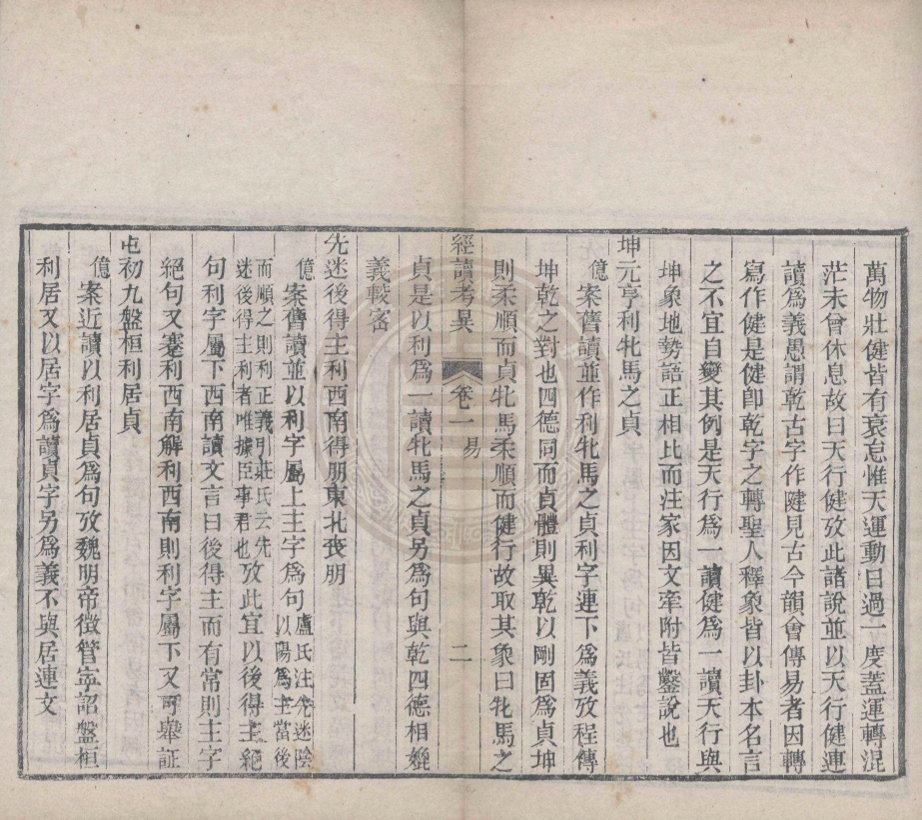 萬物壯健皆有衰怠惟天運動日過一度蓋運轉混
茫未曾休息故曰天行健攷此諸說並以天行健連
讀爲義愚謂乾古字作䭿見古今韻會傳易者因轉
寫作健是健卽乾字之轉聖人釋象皆以卦本名言
之不宜自變其例是天行爲一讀健爲一讀天行與
坤象地勢語正相比而注家因文牽附皆鑿說也
坤元亨利牝馬之貞
億案舊讀並作利牝馬之貞利字連下爲義攷程傳
坤乾之對也四德同而貞體則異乾以剛固爲貞坤
則柔順而貞牝馬柔順而健行故取其象曰牝馬之
經讀考異 卷一 易 二
貞是以利爲一讀牝馬之貞另爲句與乾四德相變
義較密
先迷後得主利西南得朋東北喪朋
億案舊讀並以利字屬上主字爲句盧氏注先迷陰
以陽爲主當後
而順之則利正義引莊氏云先
迷後得主利者唯據臣事君也攷此宜以後得主絕
句利字屬下西南讀文言曰後得主而有常則主字
絕句又蹇利西南解利西南則利字屬下又可舉証
屯初九盤桓利居貞
億案近讀以利居貞爲句攷魏明帝徵管寧詔盤桓
利居又以居字爲讀貞字另爲義不與居連文